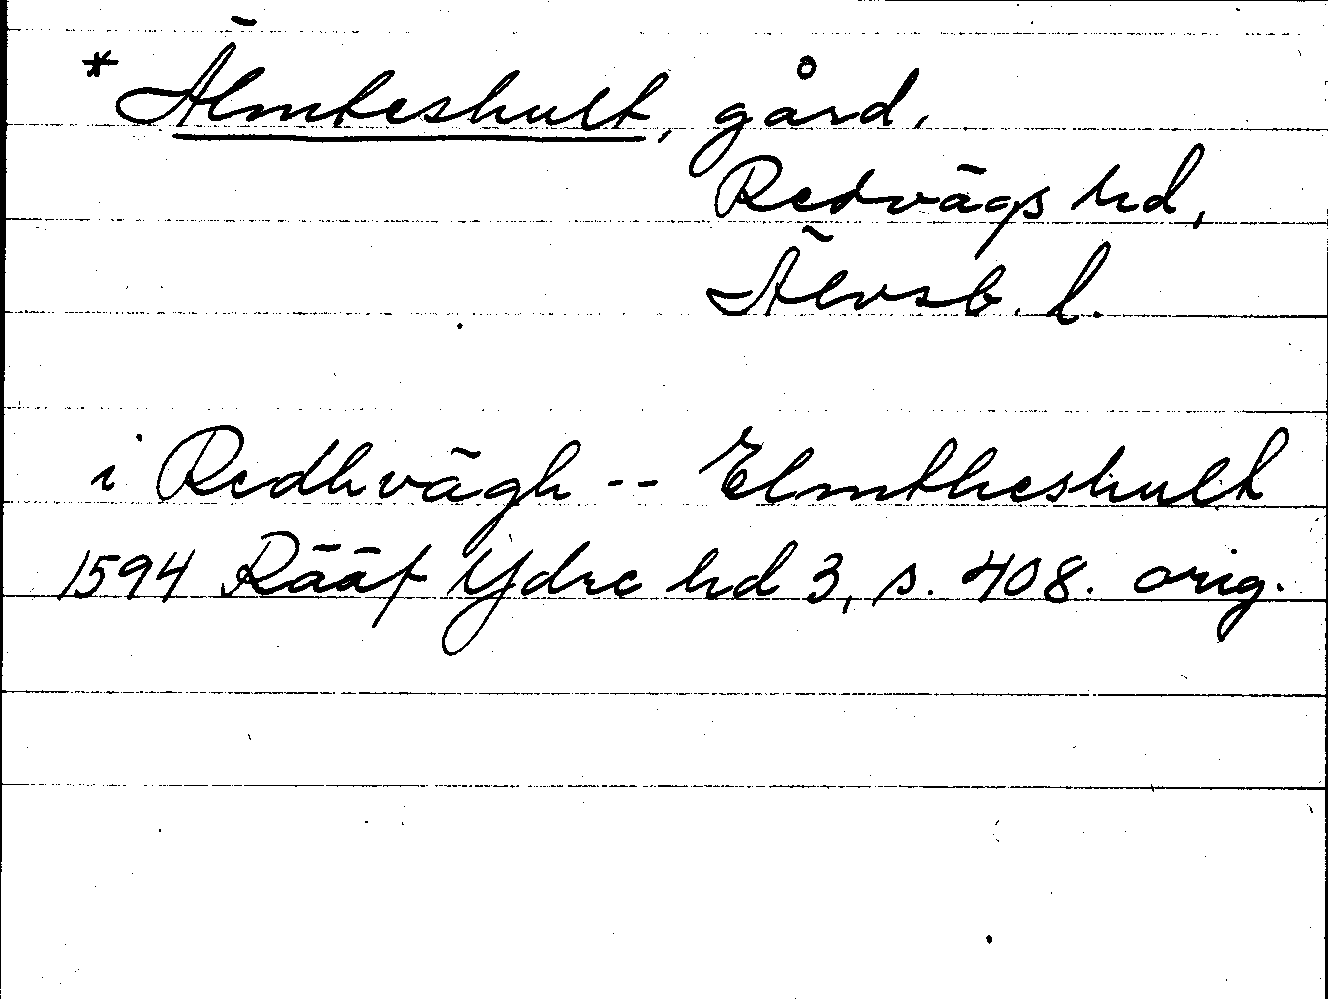 * Älmteshult, gård,
Redvägs hd,
Älvsb. l.
i Redhvägh -- Elmtheshult
1594 Rääf Ydre hd 3, s. 408. orig.